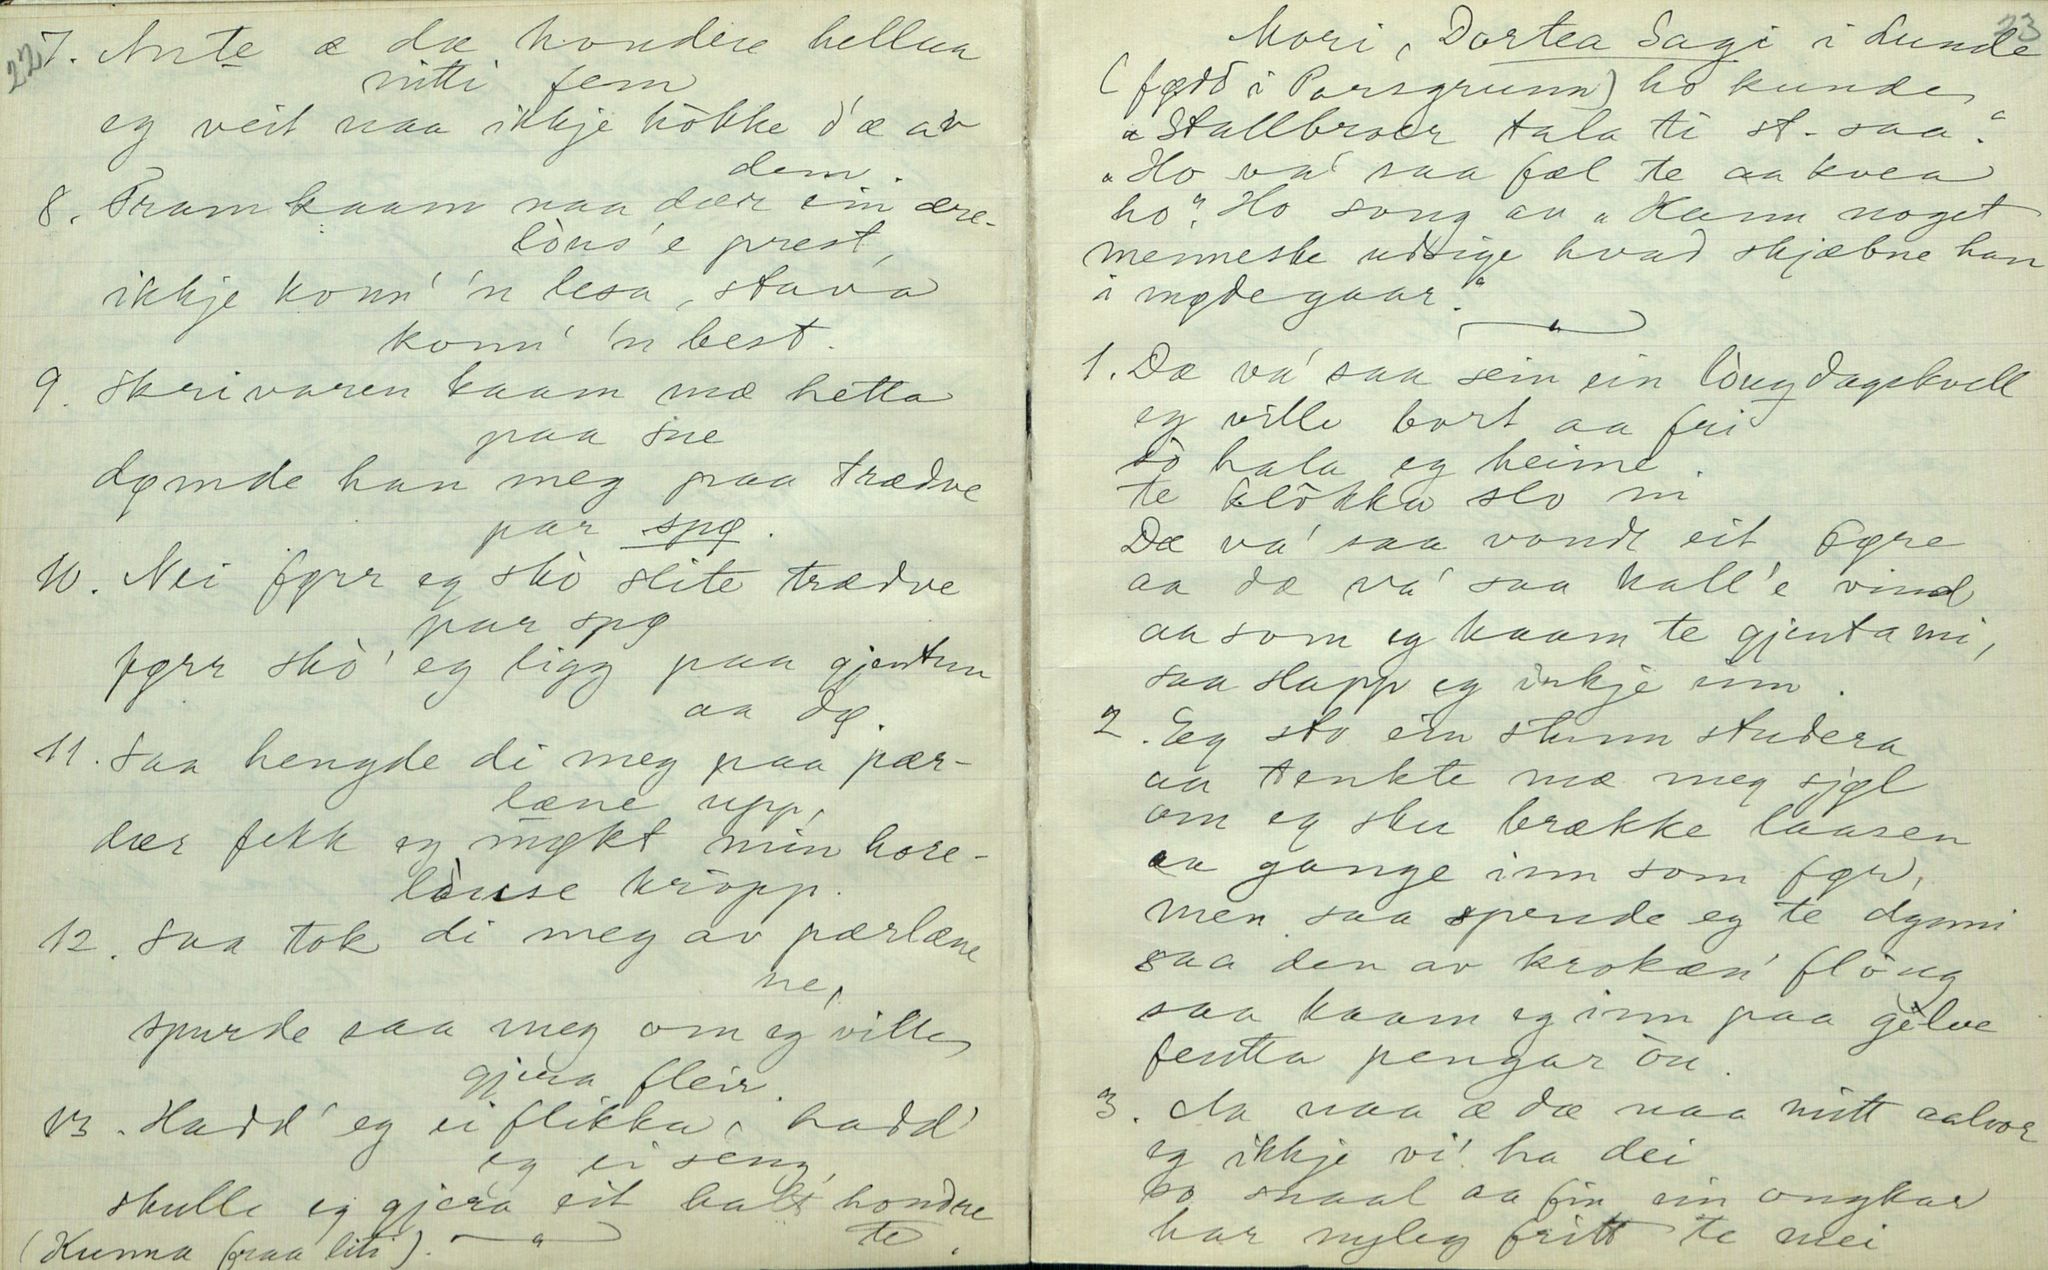 22
7. Ante æ dæ hondre hellua
nitti fem
eg veit naa ikkje hòkke d'æ av
dem.
8. Fram kaam naa dær ein ære-
lòus'e prest,
ikkje konn' 'n lesa, stava
konn' 'n best.
9. Skrivaren kaam mæ hetta
paa sne
dømde han meg paa trædve
par spø.
10. Nei førr eg skò slite trædve
par spø
førr skò' eg ligg paa gjentun
aa dø.
11. Saa hengde di meg paa pær-
læne upp,
dær fekk eg mykt min hore-
lòuse kròpp.
12. Saa tok di meg av pærlæne
ne,
spurde saa meg om eg ville
gjera fleir.
13. Hadd' eg ei flikka, hadd'
eg ei seng,
skulle eg gjera eit halt hondre
te.
(Kunna fraa liti).
23
Mori, Dortea Sagi i Lunde
(fødd i Porsgrunn) ho kunde
"Stallbroer tala ti st. saa."
"Ho va' saa fæl te aa kvea
ho". Ho song au "Kann noget
menneske udsige hvad skjæbne han
i mødegaar."
1. Dæ va' saa sein ein lòugdagskvell
eg ville bort aa fri
so hala eg heime
te klòkka slo ni
Dæ va' saa vondt eit føre
aa dæ va' saa kall'e vind
aa som eg kaam te gjenta mi,
saa slapp eg inkje inn.
2. Eg sto ein stunn studera
aa tenkte mæ meg sjøl
om eg sku brække laasen
aa gange inn som før,
men saa spende eg te dynni
saa den av krokæn' flòug
saa kaam eg inn paa gòlve
fentta pengar òu.
3. Aa naa æ dæ naa mitt aalvor
eg ikkje vi' ha dei
so snaal aa fin ein ongkar
har nyleg fritt te mei